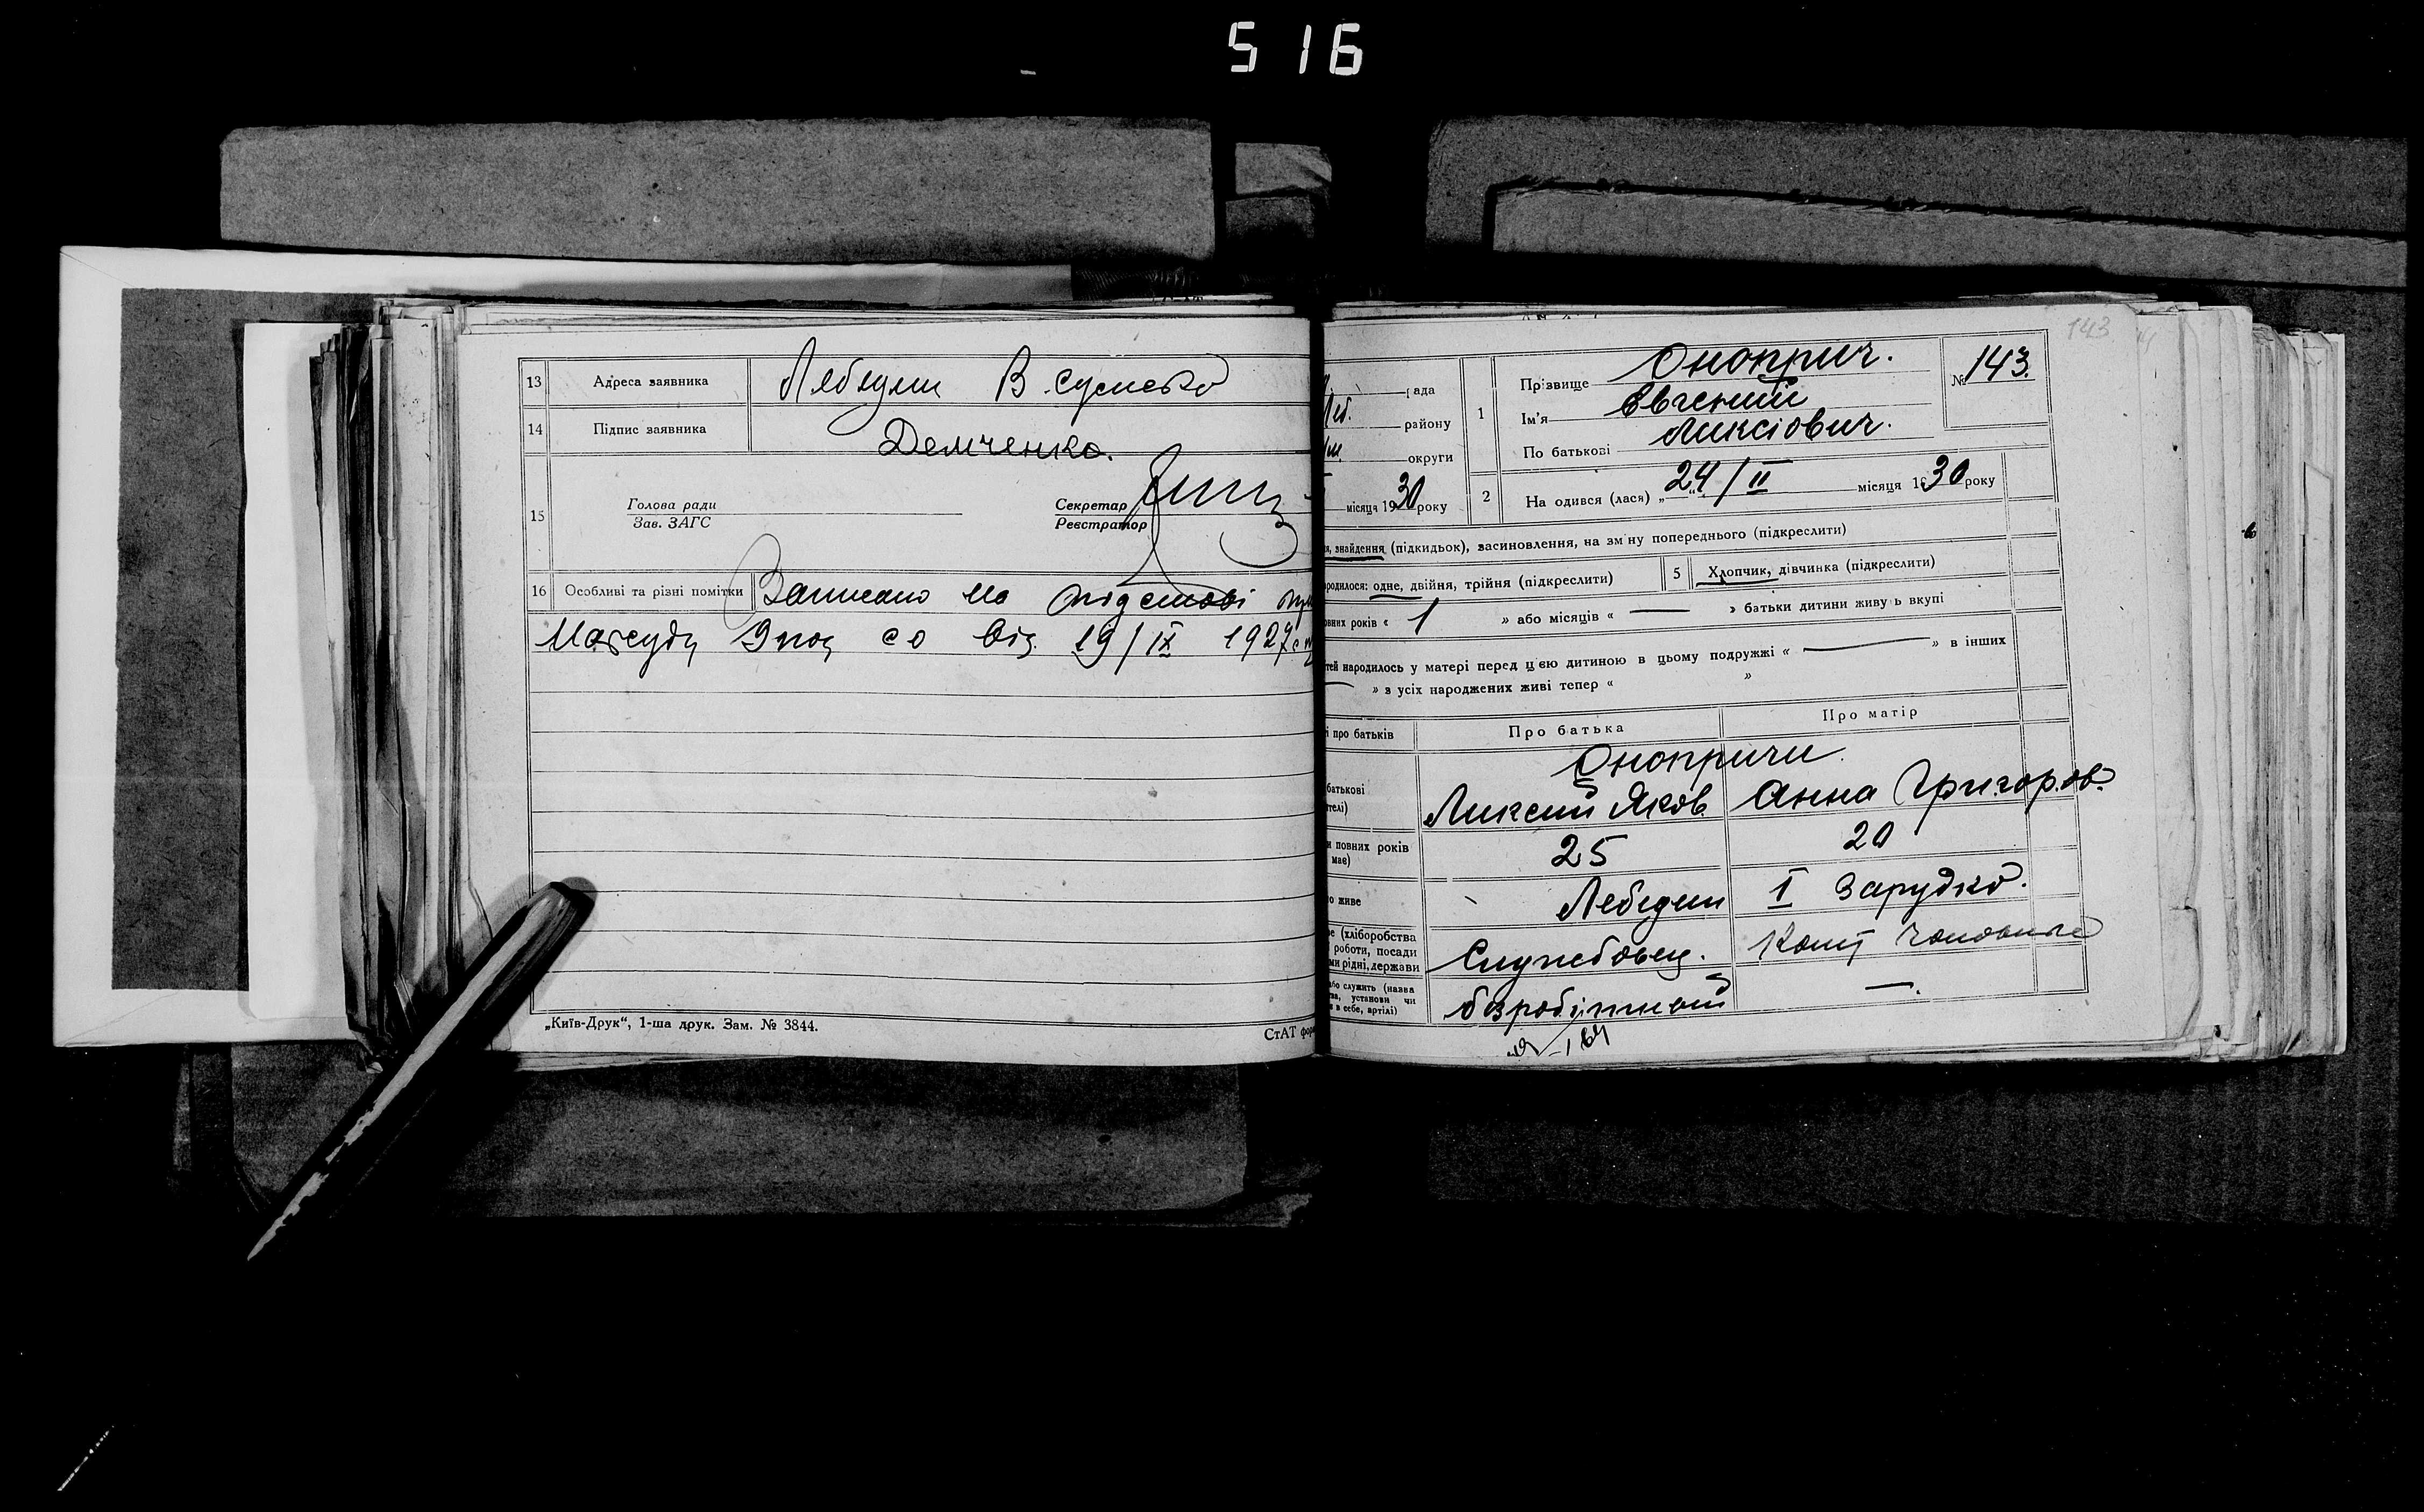 516
13 Адреса заявника Лебедин В. Сумська
14 Підпис заявника Демченко.
15 Голова ради
Зав. ЗАГС
Секретар
Реєстратор
16 Особливі та різні помітки Записано на підставі
від 19/IX 1927
„Київ-Друк“, 1-ша друк. Зам. № 3844.
СтАТ фор
143
рада
Леб. району
округи
місяця 1930 року
1 Прізвище Оноприч.
Ім'я Євгений
По батькові Ликсіович.
№ 143.
2 На одився (лася) „24/II місяця 1930 року
я, знайдення (підкидьок), засиновлення, на зм ну попереднього (підкреслити)
родилося: одне, двійня, трійня (підкреслити)
5 Хлопчик, дівчинка (підкреслити)
овних років « 1 » або місяців « — » батьки дитини живу ь вкупі
тей народилось у матері перед цією дитиною в цьому подружжі « — » в інших
» з усіх народжених живі тепер « »
і про батьків Про батька Про матір
Онопричи
батькові
телі)
Ликсий Яков. Анна Григоров.
и повних років
має)
25 20
о живе Лебедин I Зарудко.
ре (хліборобства
роботи, посади
ми рідні, держави
Службовец.
або служить (назва
тва, установи чи
я в себе, артілі)
безробітний —.